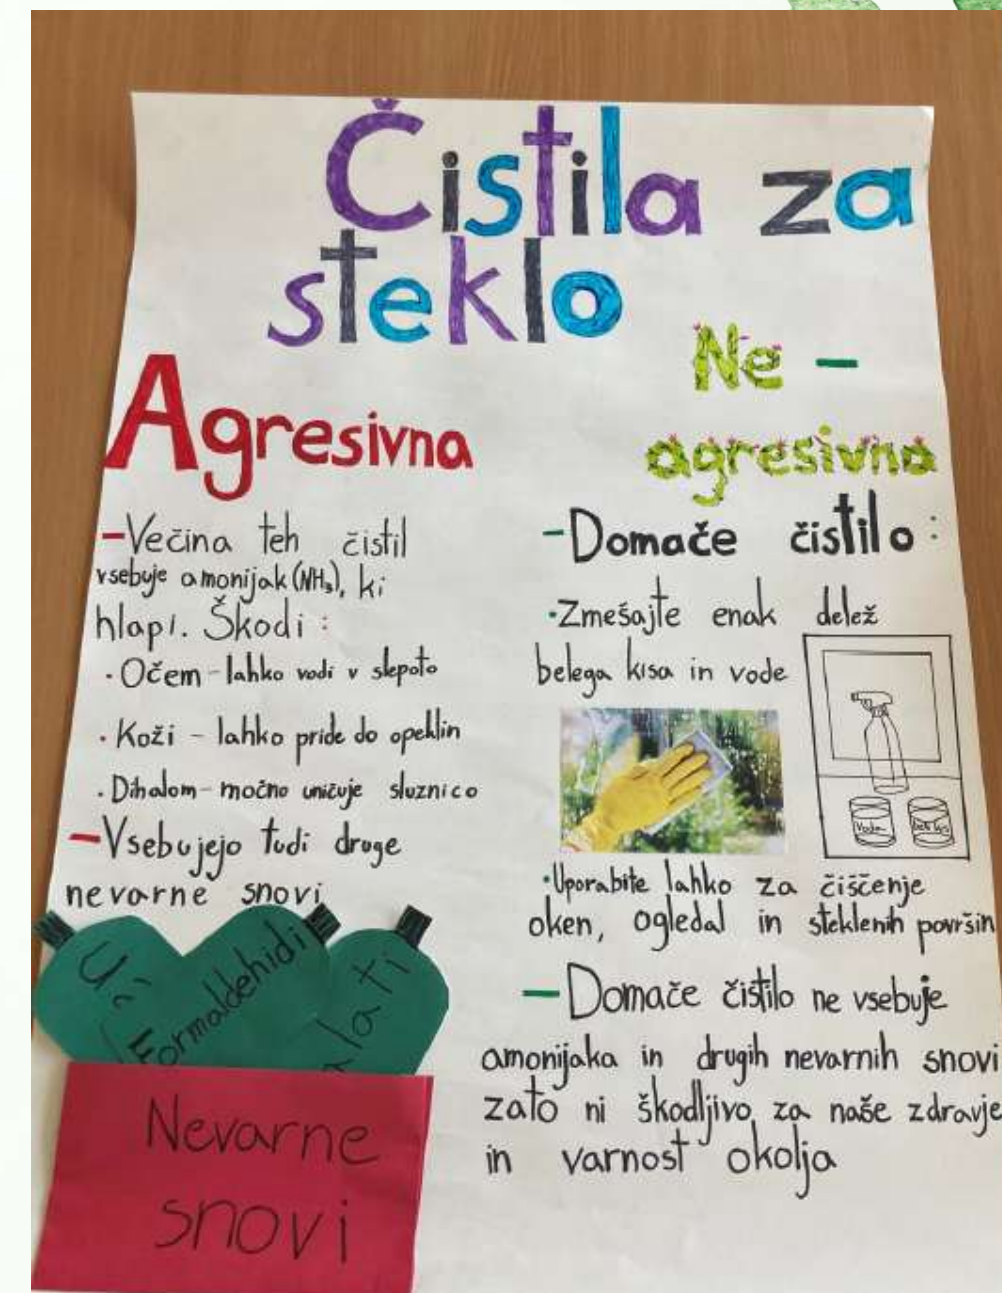 Čistila za
steklo
Agresivna
-Večina teh čistil
vsebuje amonijak (NH₃), ki
hlapi. Škodi:
· Očem - lahko vodi v slepoto
· Koži - lahko pride do opeklin
· Dihalom - močno uničuje sluznico
-Vsebujejo tudi druge
nevarne snovi
Formaldehidi
Nevarne
snovi
Ne -
agresivna
-Domače čistilo:
·Zmešajte enak delež
belega kisa in vode
Voda
·Uporabite lahko za čiščenje
oken, ogledal in steklenih površin
-Domače čistilo ne vsebuje
amonijaka in drugih nevarnih snovi
zato ni škodljivo za naše zdravje
in varnost okolja